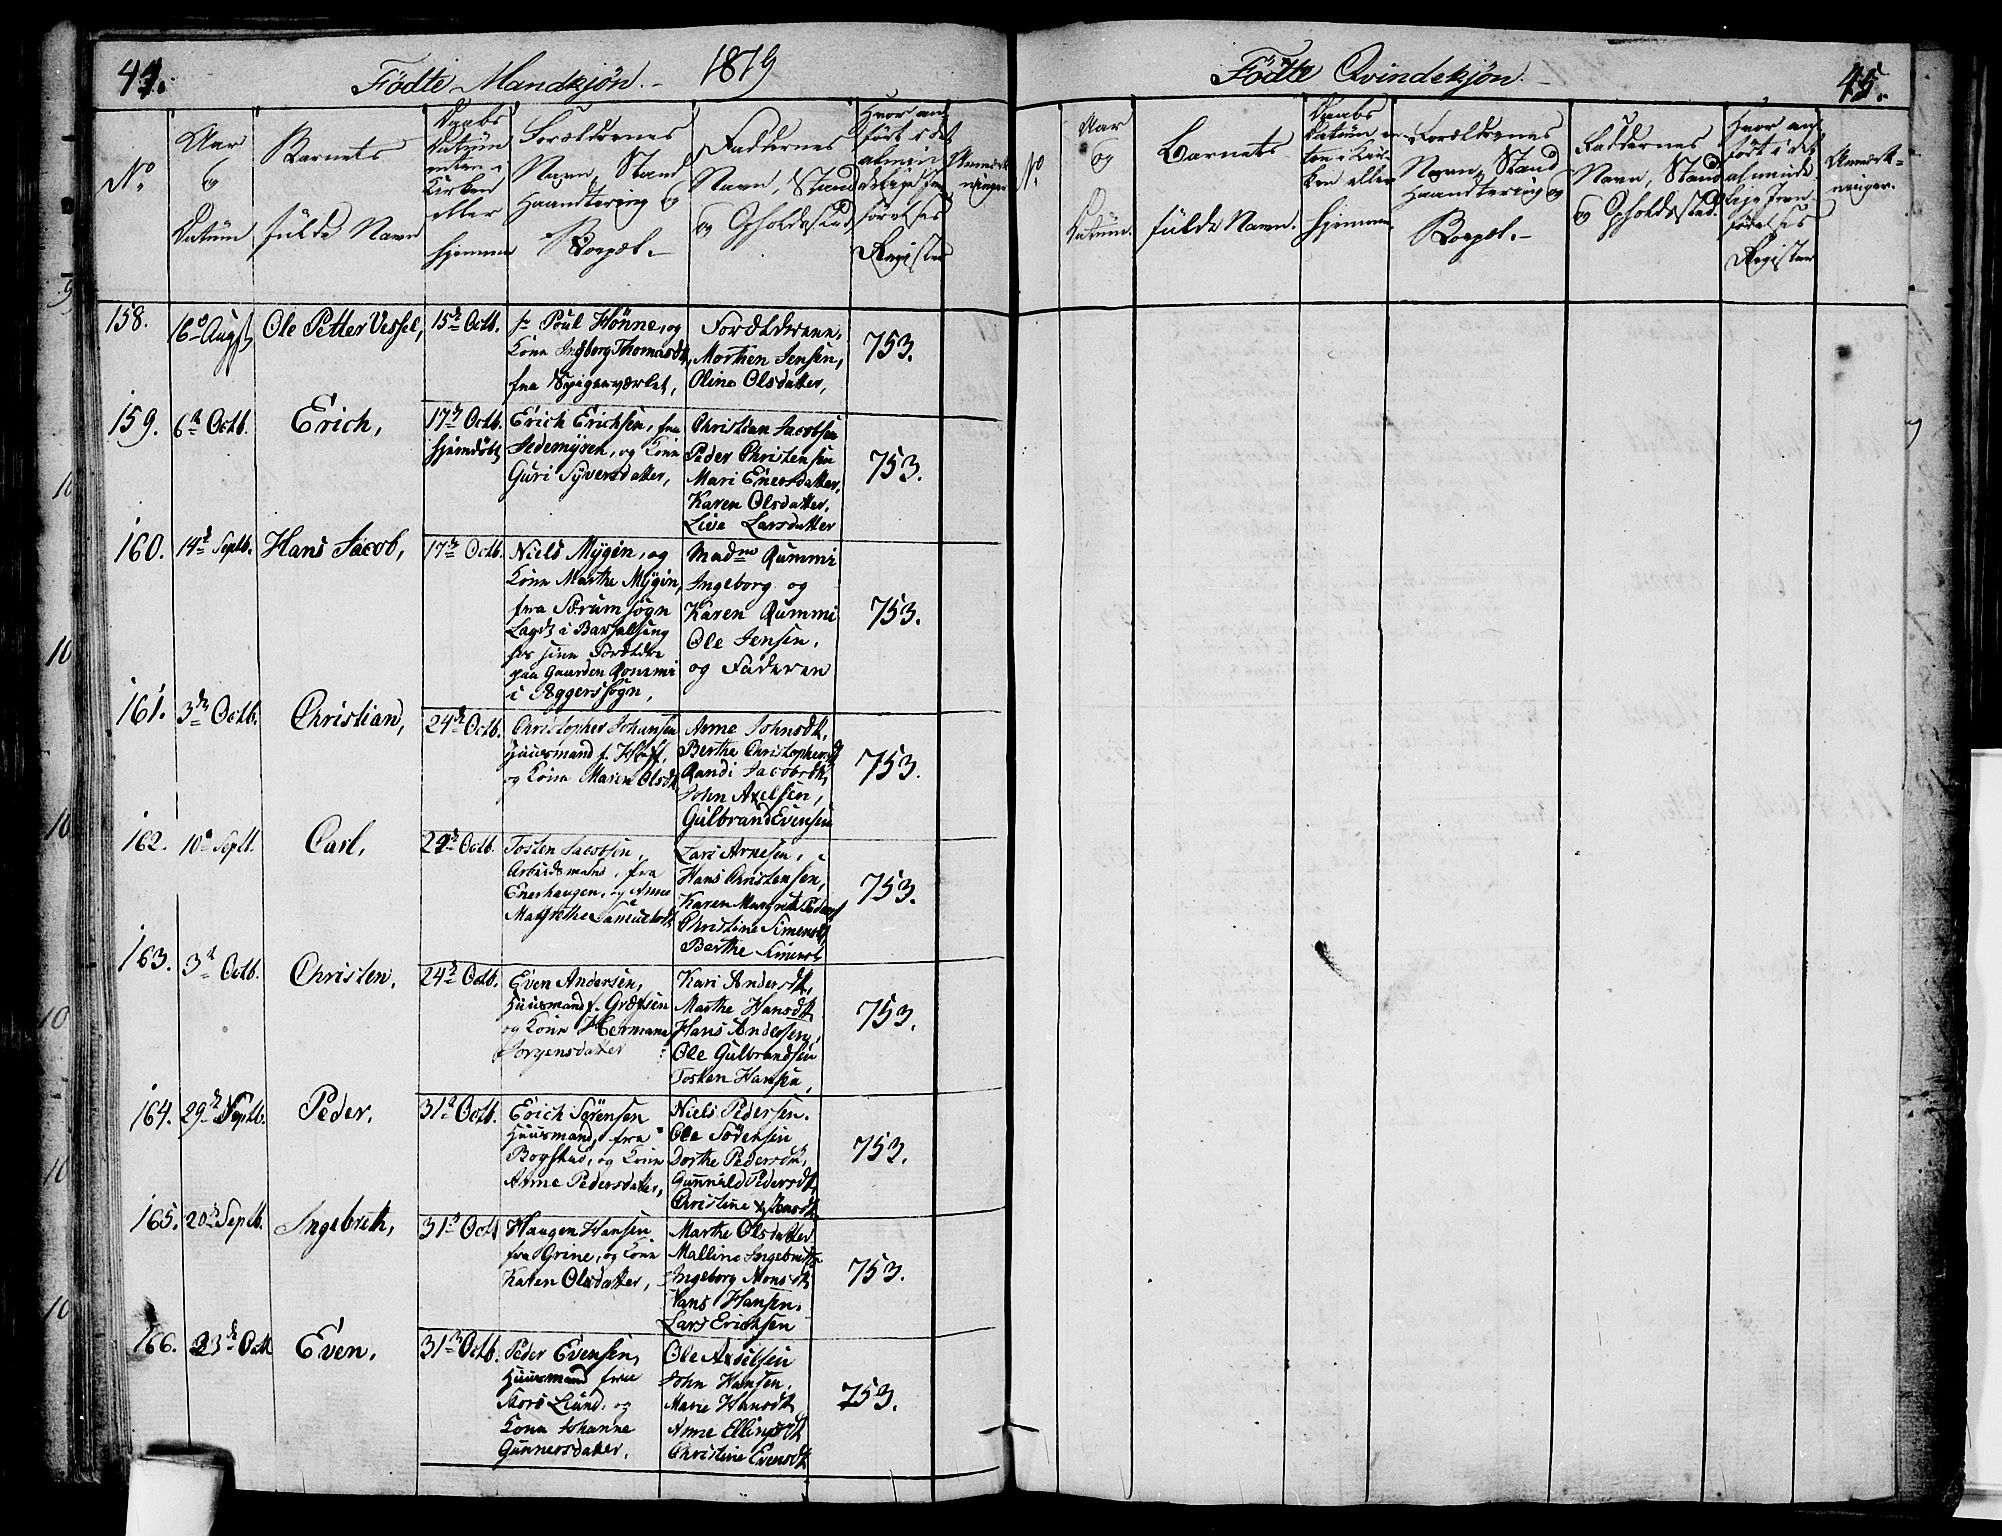 44.
Födte Mandkjön.- 1819
No.
Aar
og
Datum
Barnets
fulde Navn
Daabs
Datum
enten i
Kirken
eller
hjemme
Forældrenes
Navn, Stand
Haandtering og
Boepæl.-
Faddernes
Navn, Stand
og Opholdssted
Hvor an-
fört i det
almin-
delige Jevn-
förelses
Register
Anmærk-
ninger
158.
16de Augst
Ole Petter Vessel,
15de Octb.
Poul Hönne, og
Kone Ingborg Thomasdt,
fra Spigerværket,
Forældrene,
Morthen Jensen,
Oline Olsdatter,
753.
159.
6te Octb.
Erich,
17de Octb.
hjemdöbt
Erich Erichsen, fra
Guri Syversdatter,
Christian Jacobsen
Peder Christensen
Mari Enersdatter,
Karen Olsdatter,
Live Larsdatter
753.
160.
14de Septb.
Hans Jacob,
17de Octb.
Niels Mygin, og
Kone Marthe Mygin,
fra Sörum sogn
Lagdt i Barselseng
hos sine Forældre
paa Gaarden Rommi
i Aggers sogn,
Madme Rummi
Ingeborg og
Karen Rummi
Ole Jensen,
og Faderen
753.
161.
3de Octb.
Christian,
24de Octb.
Christopher Johansen
Huusmand f.
og Kone Maren Olsdt
Anne Johnsdt,
Berthe Christophersdt
Randi Jacobsdt,
John Axelsen,
Gulbrand Evensen
753.
162.
10de Septb.
Carl,
24de Octb.
Tosten Jacobsen,
Arbeidsmand, fra
Enerhaugen, og Anne
Magrethe Samuelsdt
Lars Arnesen,
Hans Christensen,
Karen Margreth Pedersdt
Christine Simensdt
Berthe Simensdt
753.
163.
3de Octb.
Christen.
24de Octb.
Even Andersen,
Huusmand f. Græfsen
og Kone Hermana
Jorgensdatter
Kari Andersdt,
Marthe Hansdt
Hans Andersen,
Ole Gulbrandsen
Tosten Hansen,
753.
164.
29de Septb.
Peder.
31te Octb.
Erich Sörensen
Huusmand, fra
Bogstad, og Kone
Anne Pedersdatter,
Niels Pedersen.
Ole Sörensen
Dorthe Pedersdt,
Gunnild Pedersdt,
Christine
753.
165.
20de Septb.
Ingebreth,
31te Octb
Haagen Hansen
fra Grine, og Kone
Karen Olsdatter,
Marthe Olsdatter
Malline Ingebretsdt
Ingeborg Monsdt
Hans Hansen,
Lars Erichsen
753.
166.
23de Octb
Even.
31te Octb.
Peder Evensen,
Huusmand fra
Store Lund, og
Kone Johanne
Gunnersdatter,
Ole Axelsen
John Hansen,
Marie Hansdt
Anne Ellingsdt
Christine Evensdt
753.
Födte Qvindekjön.-
45.
No.
Aar
og
Datum.
Barnets
fulde Navn.
Daabs
Datum en-
ten i Kir-
ken eller
hjemme.
Forældrenes
Navn, Stand
Haandtering og
Boepæl.-
Faddernes
Navn, Stand
og Opholdssted.
Hvor an-
fört i det
alminde
lige Jevn-
förelses
Register
Anmærk-
ninger.